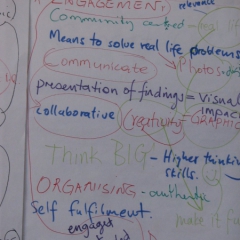 ENGAGEMENT,
relevance
Community centred - real life
Means to solve real life problems
Communicate
Photos
presentation of findings = Visual
impact
collaborative
creativity - GRAPHIC
Think BIG - Higher thinking
skills.
ORGANISING - authentic
self fulfilment.
make it fu
engaged